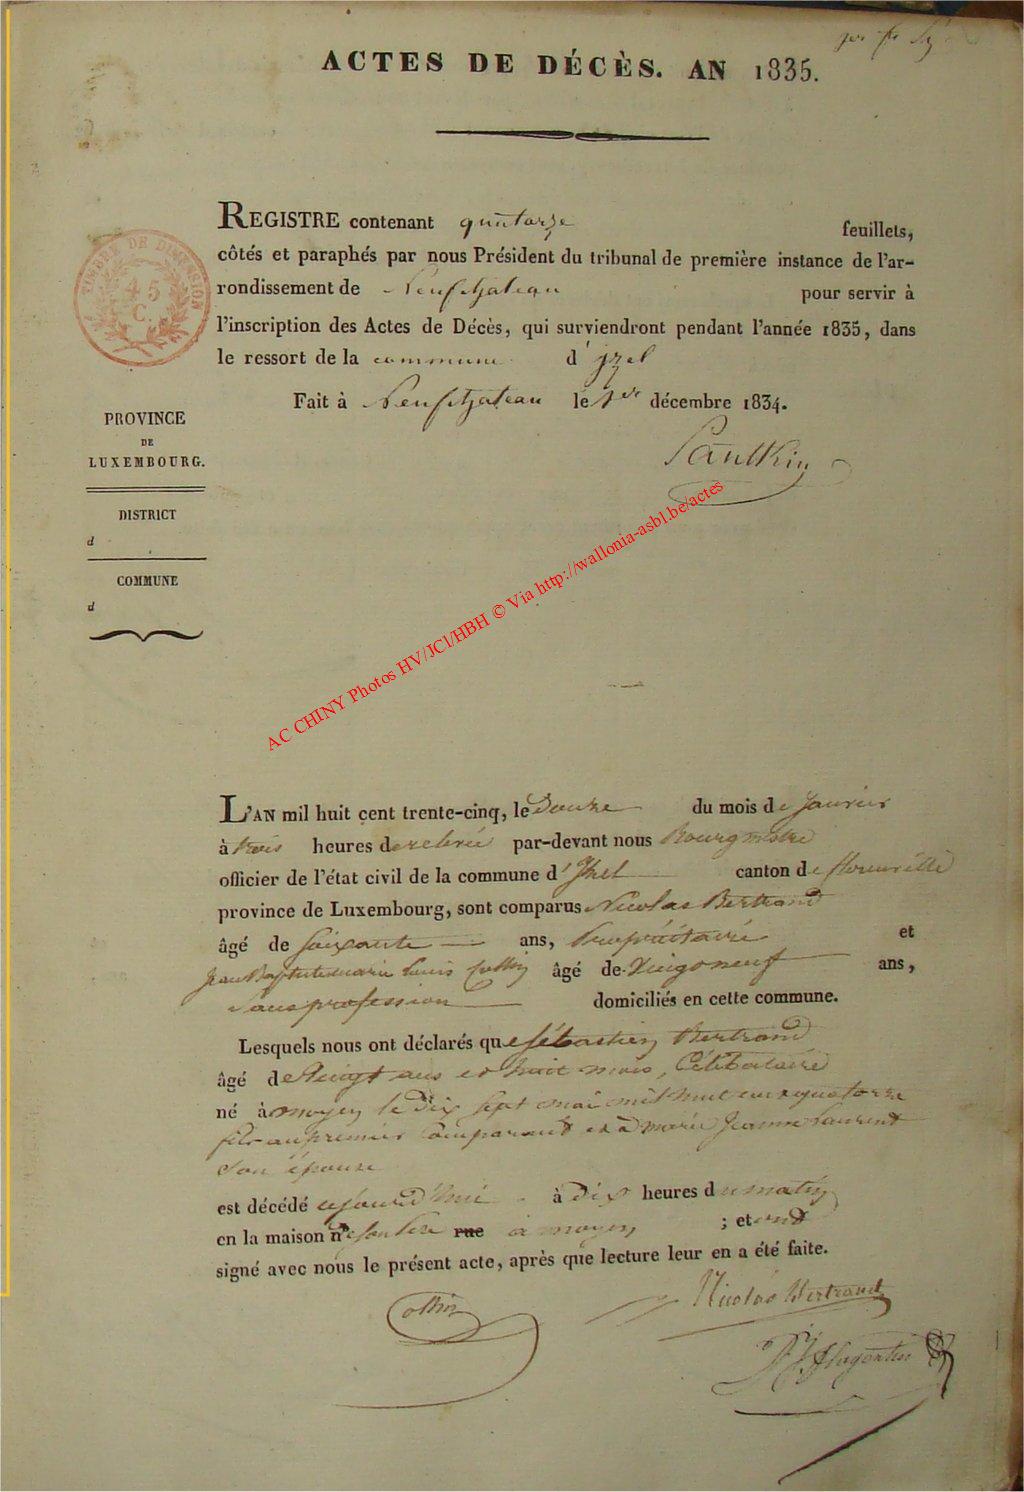 ACTES DE DÉCÈS. AN 1835.
TIMBRE DE DIMENSION
45
C.
REGISTRE contenant quatorze feuillets,
côtés et paraphés par nous Président du tribunal de première instance de l'ar-
rondissement de Neufchateau pour servir à
l'inscription des Actes de Décès, qui surviendront pendant l'année 1835, dans
le ressort de la commune d'izel
Fait à Neufchateau le 1er décembre 1834.
PROVINCE
DE
LUXEMBOURG.
DISTRICT
d
COMMUNE
d
AC CHINY Photos HV/JCl/HBH © Via http://wallonia-asbl.be/actes
L'AN mil huit cent trente-cinq, le Douze du mois de Janvier
à trois heures de relevée par-devant nous Bourgmestre
officier de l'état civil de la commune d'Izel canton de florenville
province de Luxembourg, sont comparus Nicolas Bertrand
âgé de Soixante ans, Propriétaire et
Jean Baptiste marie Louis Collin âgé de Vingt neuf ans,
Sans profession domiciliés en cette commune.
Lesquels nous ont déclarés que sébastien Bertrand
âgé de Vingt ans et huit mois, Célibataire
né à moyen le dix sept mai mil huit cent quatorze
fils au premier Comparant et à marie Jeanne Laurent
Son épouse
est décédé aujourd'hui à Dix heures du matin
en la maison de son père rue à moyen ; et ont
signé avec nous le présent acte, après que lecture leur en a été faite.
Collin
Nicolas Bertrand